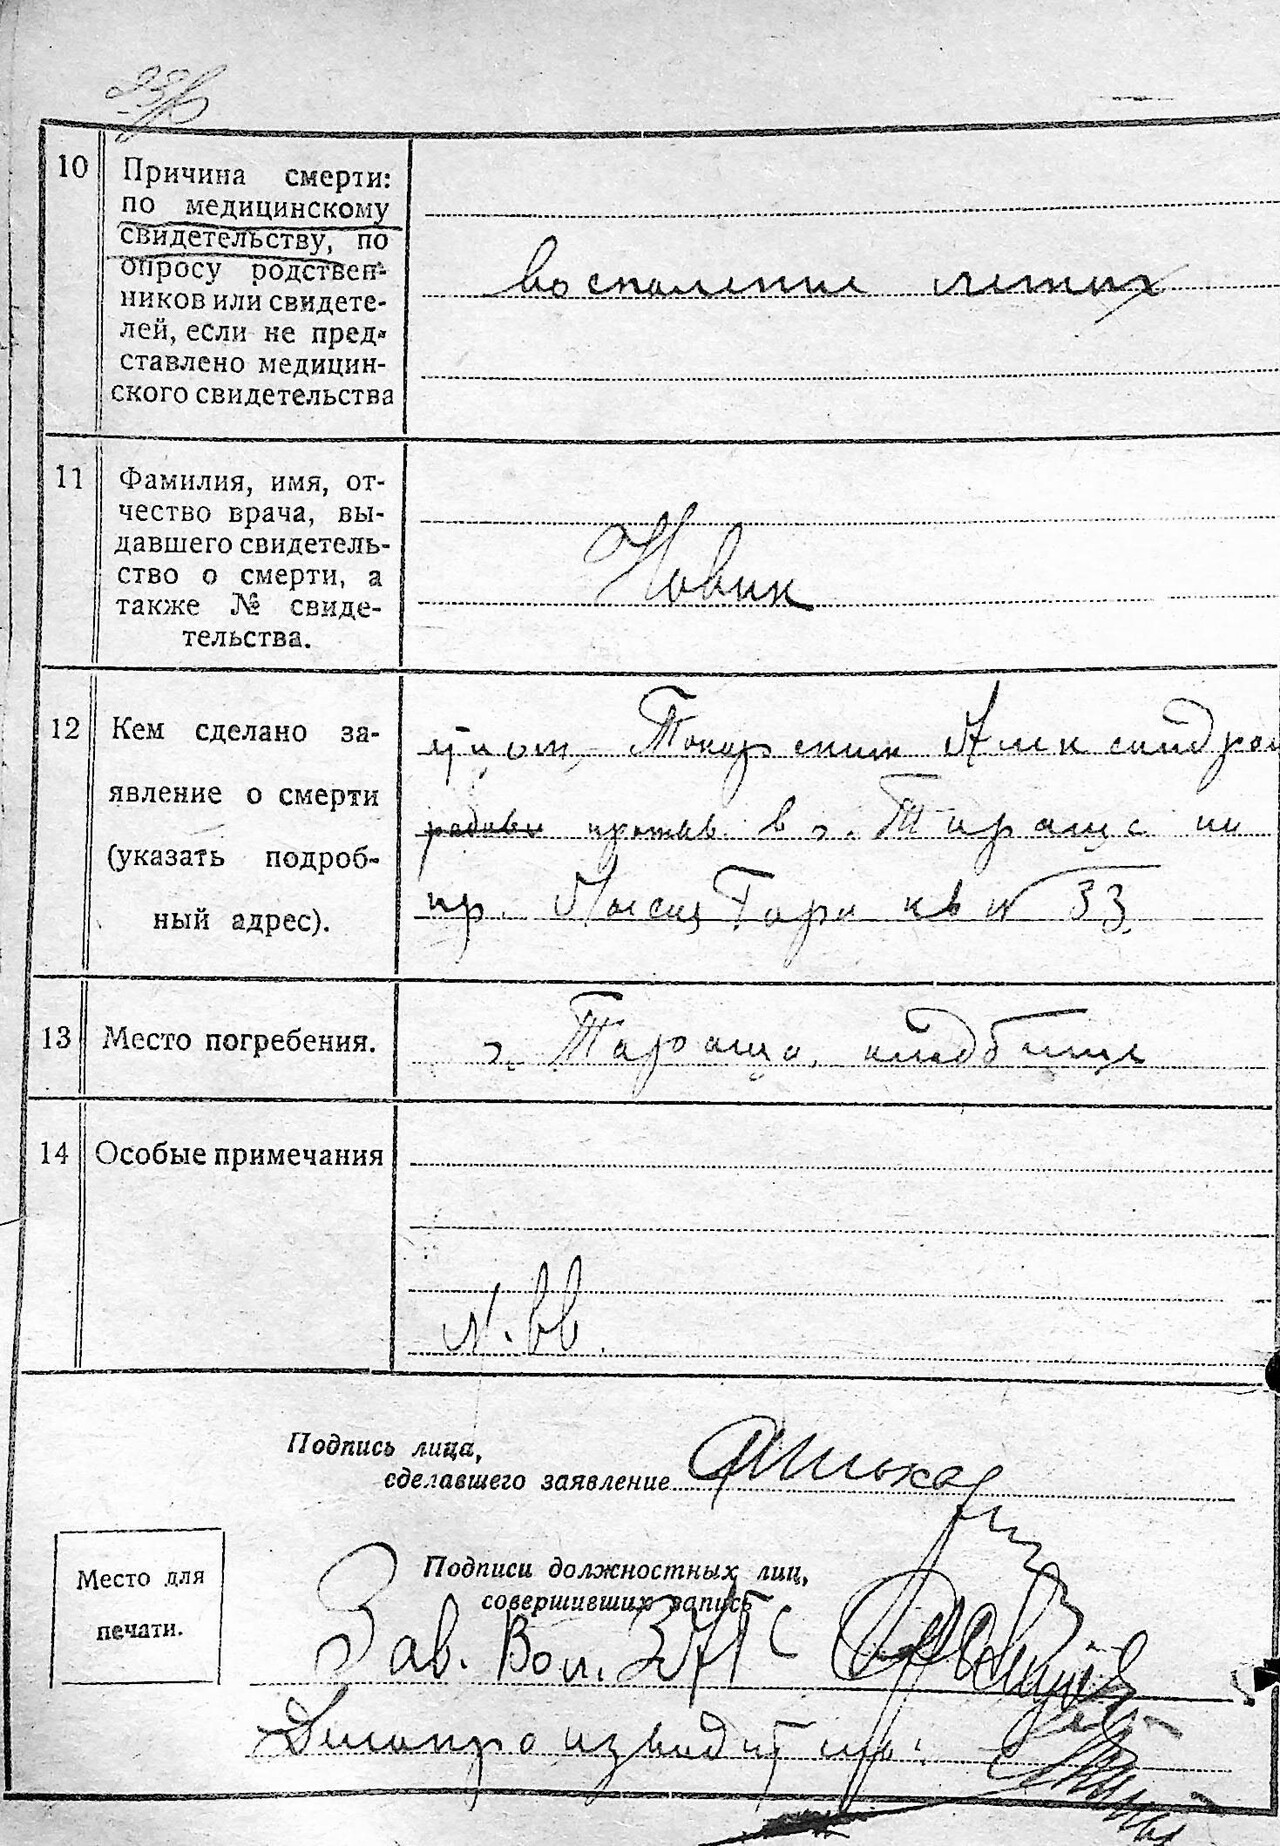 10
Причина смерти:
по медицинскому
свидетельству, по
опросу родствен-
ников или свидете-
лей, если не пред-
ставлено медицин-
ского свидетельства
воспаление легких
11
Фамилия, имя, от-
чество врача, вы-
давшего свидетель-
ство о смерти, а
также № свиде-
тельства.
Новик
12
Кем сделано за-
явление о смерти
(указать подроб-
ный адрес).
Токарским Александром
прожив в г. Тараще по
пр. Лысая Гора кв № 33
13
Место погребения.
г. Тараща, кладбище
14
Особые примечания
Подпись лица,
сделавшего заявление
Место для
печати.
Подписи должностных лиц,
совершивших запись
Зав. Вол. ЗАГС
Делопроизводитель: